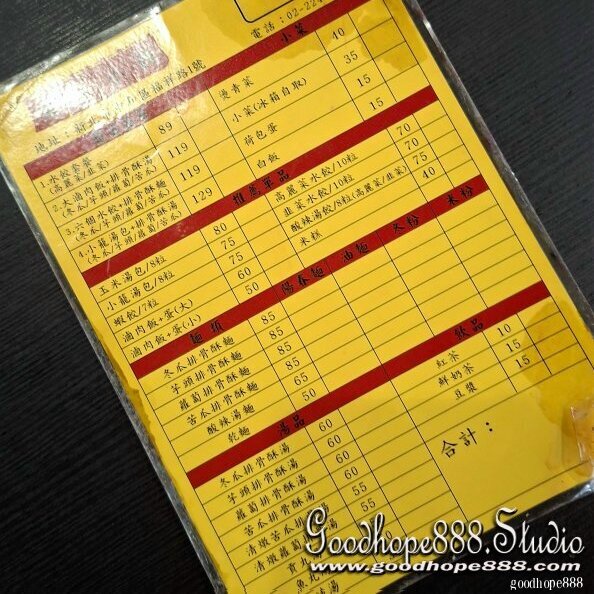 電話：02-22
地址：
福祥路1號
小菜
燙青菜 40
小菜(冰箱自取) 35
荷包蛋 15
白飯 15
1.水餃套餐 89
(高麗菜/韭菜)
2.大滷肉飯+排骨酥湯 119
(冬瓜/芋頭/蘿蔔/苦瓜)
3.六個水餃+排骨酥麵 119
(冬瓜/芋頭/蘿蔔/苦瓜)
4.小籠湯包+排骨酥湯 129
(冬瓜/芋頭/蘿蔔/苦瓜)
推薦單品
玉米湯包/8粒 80
小籠湯包/8粒 75
蝦餃/7粒 75
滷肉飯+蛋(大) 60
滷肉飯+蛋(小) 50
高麗菜水餃/10粒 70
韭菜水餃/10粒 70
酸辣湯餃/8粒(高麗菜/韭菜) 75
米糕 40
麵類 陽春麵 油麵 冬粉 米粉
冬瓜排骨酥麵 85
芋頭排骨酥麵 85
蘿蔔排骨酥麵 85
苦瓜排骨酥麵 85
酸辣湯麵 65
乾麵 50
湯品
冬瓜排骨酥湯 60
芋頭排骨酥湯 60
蘿蔔排骨酥湯 60
苦瓜排骨酥湯 60
清燉苦瓜排骨湯 55
清燉蘿蔔 55
貢丸
魚丸
飲品
紅茶 10
鮮奶茶 15
豆漿 15
合計：
Goodhope888.Studio
www.goodhope888.com
goodhope888